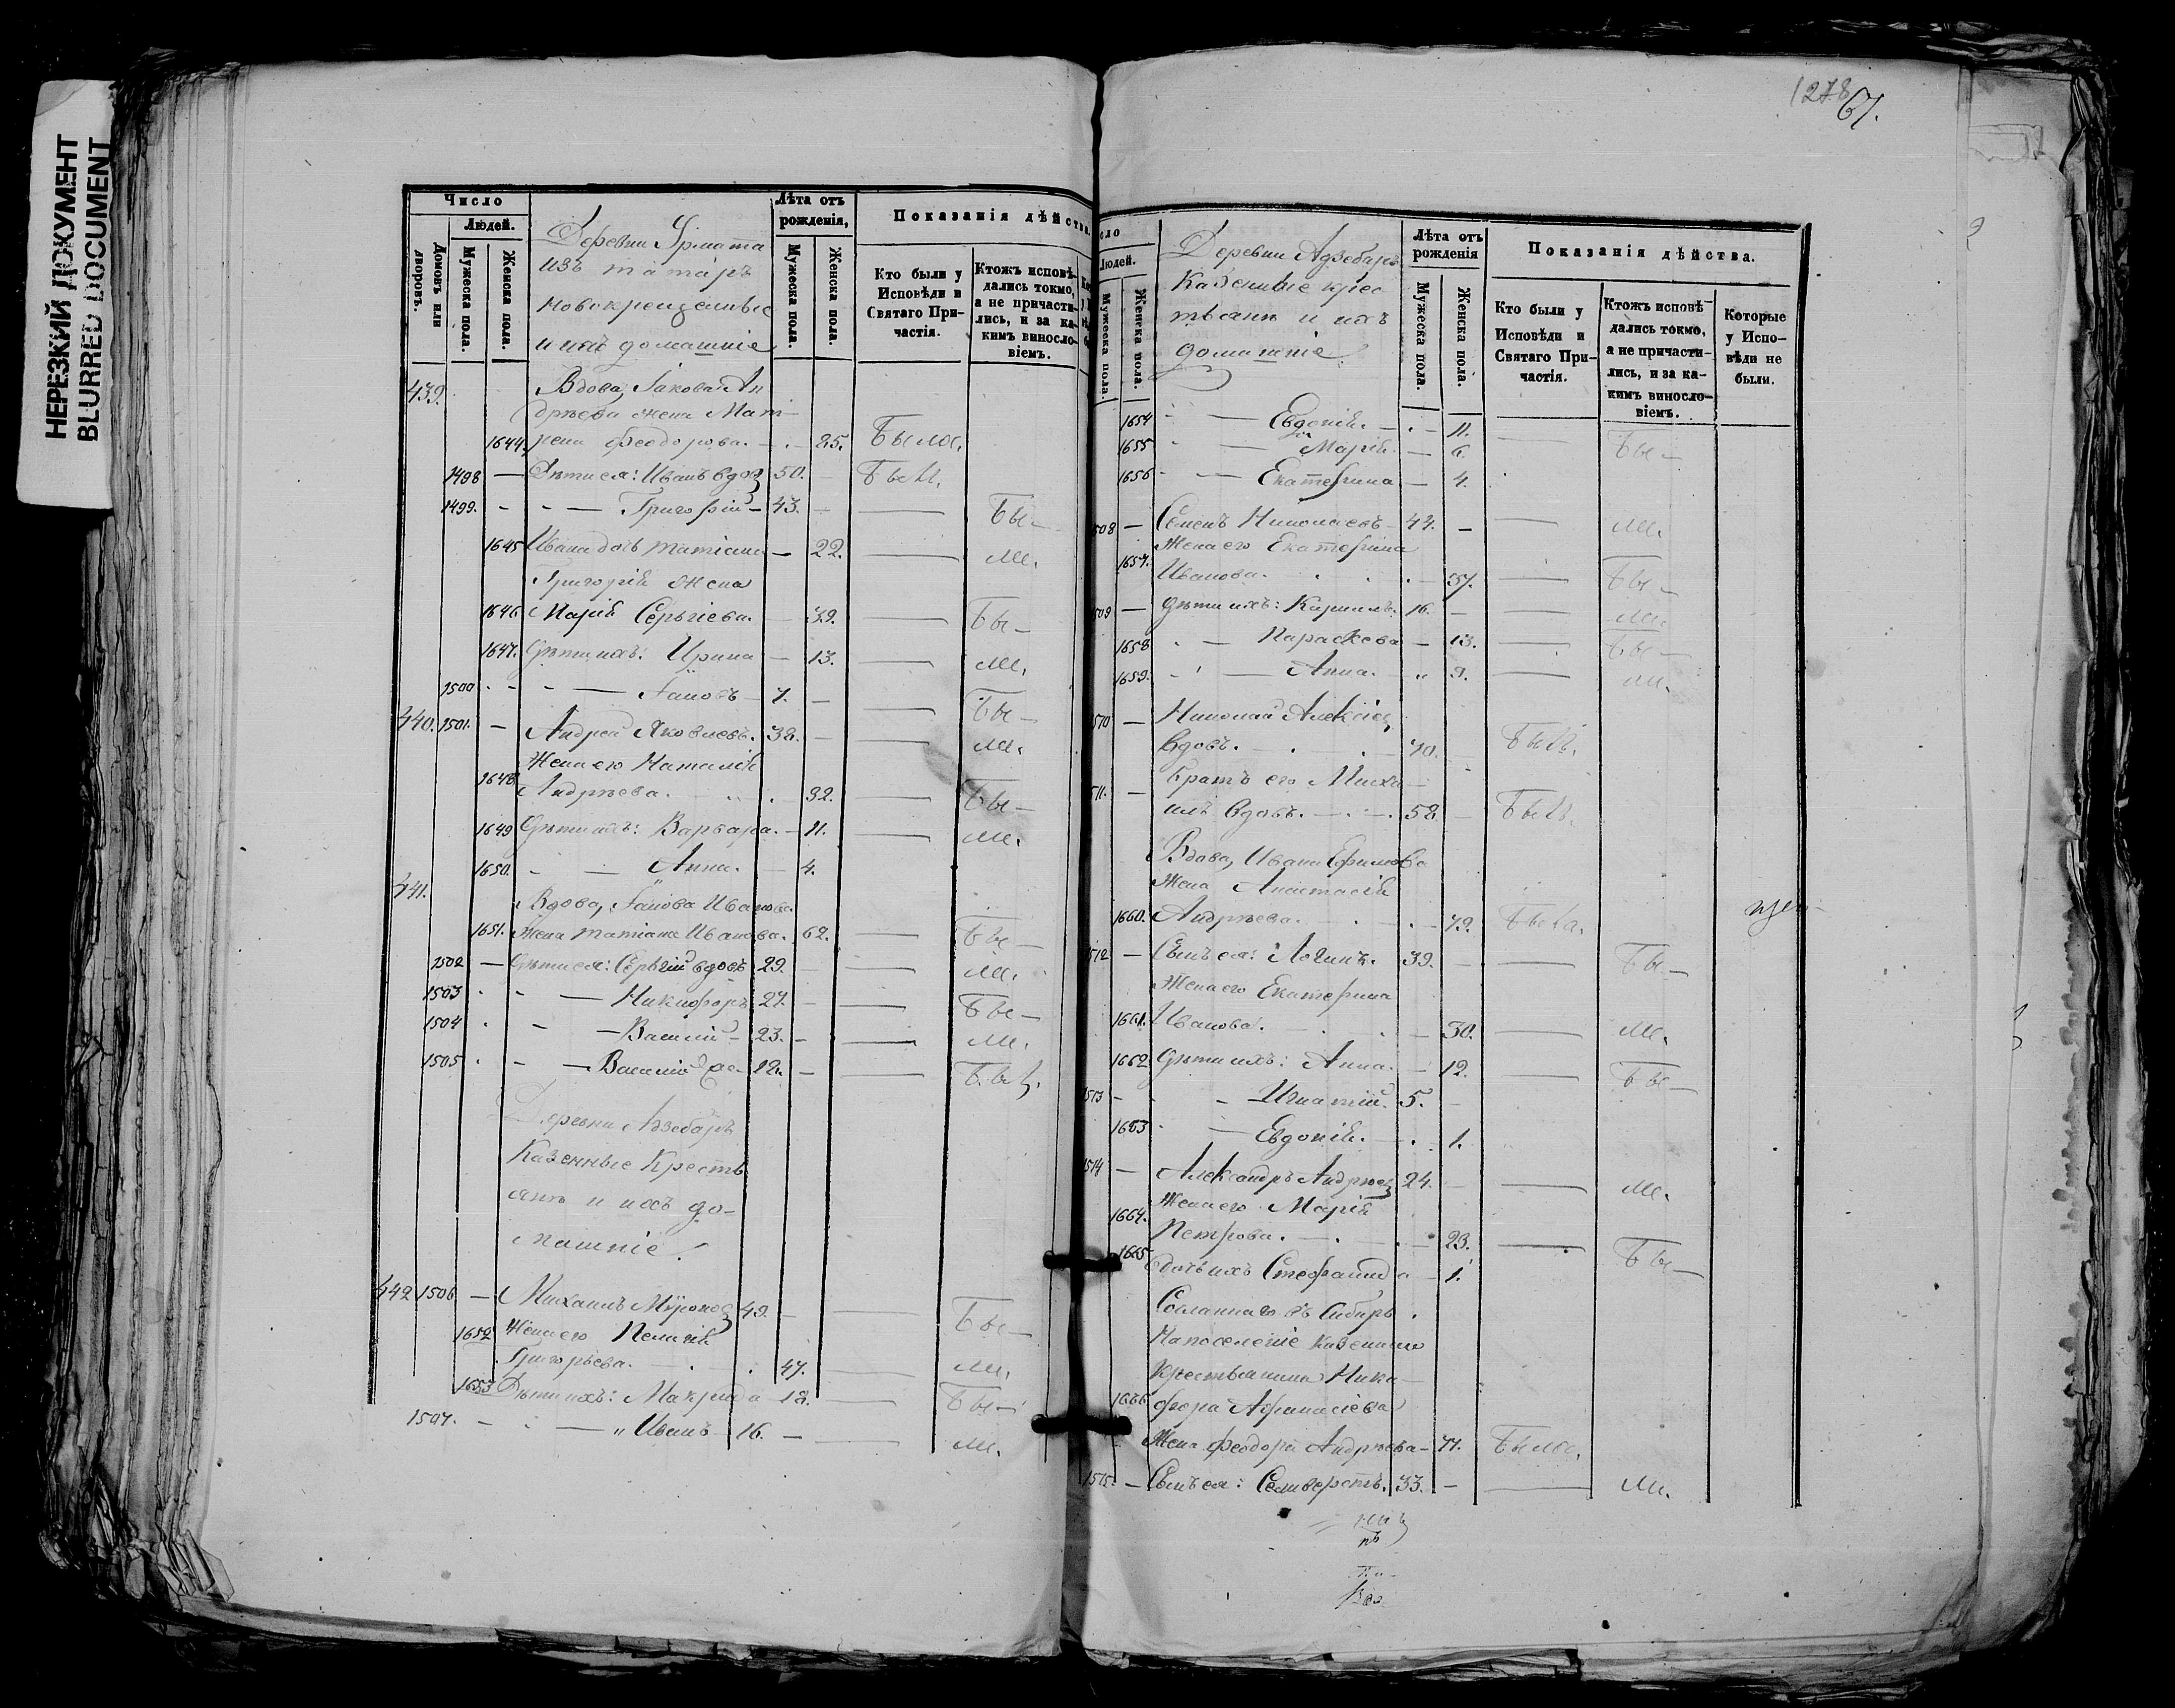 НЕРЕЗКИЙ ДОКУМЕНТ
BLURRED DOCUMENT
Число
Людей.
Домовъ или дворовъ.
Мужеска пола.
Женска пола.
Деревни Ярмата
изъ татаръ
новокрещеные
и ихъ домашніе
Лѣта отъ рожденія,
Мужеска пола.
Женска пола.
Показанія дѣйства.
Кто были у Исповѣди и Святаго Причастія.
Ктожъ исповѣдались токмо, а не причастились, и за какимъ винословіемъ.
439. Вдова, Іакова Ан
дрѣева жена Мат-
1644. рена Феодорова. — 25. Была.
1498 — Дѣти ея: Иванъ вдов 50. Былъ.
1499. - - — Григорій — 43. — Бы-
1645 Ивана дочь Татіана — 22. — ли.
Григорія жена
1646. Марія Сергіева. 39. — Бы-
1647. Дѣти ихъ: Ирина — 13. — ли.
1500 - - — Іаковъ — 7. — Бы-
440. 1501. — Андрей Яковлевъ. 38. — ли.
Жена его Наталія
1648 Андрѣева. 32. — Бы-
1649 Дѣти ихъ: Варвара. — 11. — ли.
1650. - — Анна. 4.
441. Вдова, Іакова Иванова
1651. Жена Татіана Иванова. 62. — Бы-
1502 — Дѣти ея: Сергій вдовъ 29. — ли.
1503 - - — Никифоръ 27. — Бы-
1504 - - — Василій — 23. — ли.
1505 - - — Василій 18. — Бы
Деревни Адзебаръ
Казенные Кресть
яне и ихъ до-
машніе
442 1506 — Михаилъ Мѵронов 49. — Бы-
1652 Жена его Пелагія
Григорьева. 47. — ли.
1653 Дѣти ихъ: Макрида — 18. — Бы-
1507. - — „ Иванъ — 16. — ли.
1278
67.
Число
Людей.
Мужеска пола
Женска пола.
Деревни Адзебаръ
Казенные крес
тьяне и ихъ
домашніе
Лѣта отъ рожденія
Мужеска пола.
Женска пола.
Показанія дѣйства.
Кто были у Исповѣди и Святаго Причастія.
Ктожъ исповѣдались токмо, а не причастились, и за какимъ винословіемъ.
Которые у Исповѣди не были.
1654 - — Евдокія. — 11. — Бы-
1655 - — Марія. — 6.
1656 - — Екатерина — 4.
508 — Семенъ Николаевъ — 44. — ли.
Жена его Екатерина
1657. Иванова. 37. — Бы-
509 — Дѣти ихъ: Кириллъ. 16. — ли.
1658 - — Параскева — 13. — Бы-
1659. - — Анна. 9. — ли.
510 — Николай Алексіев
вдовъ. 70. Былъ.
511. — Братъ его Миха-
илъ вдовъ. 58. Былъ.
Вдова, Ивана Ефимова
Жена Анастасія
1660. Андрѣева. 79. Была.
512 — Сынъ ея: Логинъ. 39. — Бы-
Жена его Екатерина
1661. Иванова. 30. — ли.
1662 Дѣти ихъ: Анна. 12. — Бы-
513 - - — Игнатій. 5.
1663 - — Евдокія. 1.
1514 — Александръ Андрѣев 24. — ли.
Жена его Марія
1664. Петрова. 23. — Бы-
1665 Дочь ихъ Стефанида — 1.
Сосланнаго въ Сибирь
На поселеніе казеннаго
Крестьянина Ники-
1666 фора Афанасіева
Жена Феодора Андрѣева — 71. Была.
1515. — Сынъ ея: Селиверстъ. 33. — ли.